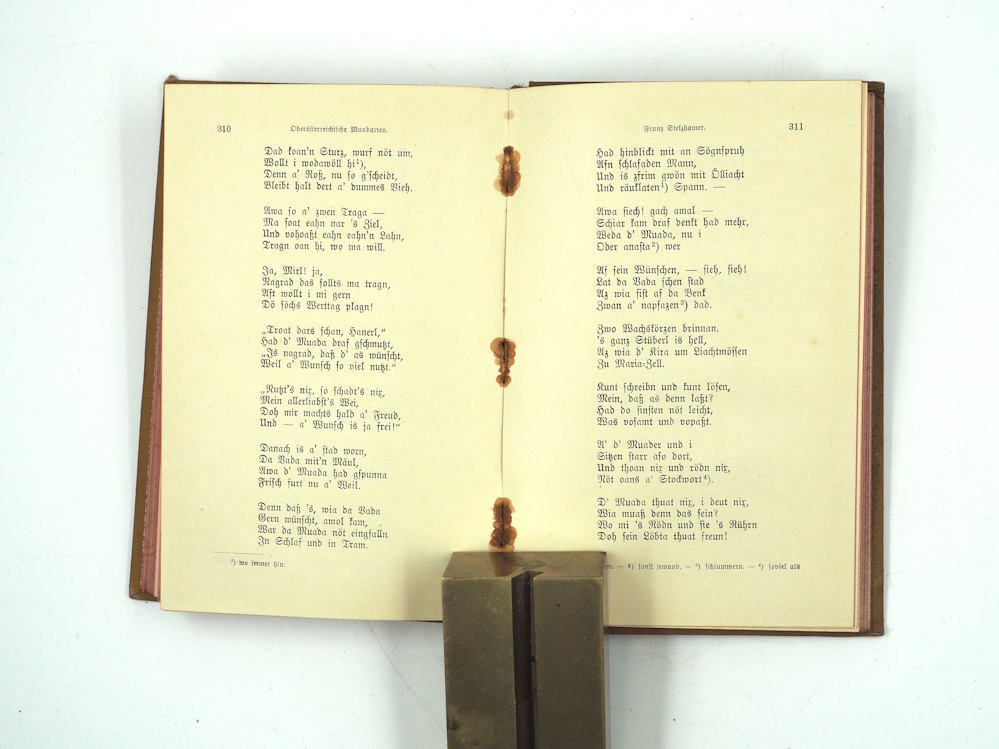 310
Oberösterreichische Mundarten.
Dad koan'n Sturz, wurf nöt um,
Wollt i wodawöll hi¹),
Denn a' Roß, nu so g'scheidt,
Bleibt halt dert a' dummes Vieh.
Awa so a' zwen Traga —
Ma soat eahn nar 's Ziel,
Und vohoaßt eahn eahn'n Lahn,
Tragn oan hi, wo ma will.
Ja, Mirl! ja,
Nagrad das sollts ma tragn,
Aft wollt i mi gern
Dö söchs Werttag plagn!
„Troat dars schan, Hanerl,“
Had d' Muada draf gschmutzt,
„Js nagrad, daß d' as wünscht,
Weil a' Wunsch so viel nutzt.“
„Nutzt's nix, so schadt's nix,
Mein allerliabst's Wei,
Doh mir machts hald a' Freud,
Und — a' Wunsch is ja frei!“
Danach is a' stad worn,
Da Vada mit'n Mäul,
Awa d' Muada had gspunna
Frisch furt nu a' Weil.
Denn daß 's, wia da Vada
Gern wünscht, amol kam,
War da Muada nöt eingfalln
In Schlaf und in Tram.
¹) wo immer hin.
Franz Stelzhamer.
311
Had hinblickt mit an Sögnspruh
Afn schlafaden Mann,
Und is zfrim gwön mit Ölliacht
Und räuklaten¹) Spann. —
Awa siech! gach amal —
Schiar kam draf denkt had mehr,
Weda d' Muada, nu i
Oder anasta²) wer
Af sein Wünschen, — sieh, sieh!
Lat da Vada schen stad
Az wia sist af da Benk
Zwan a' napfazen³) dad.
Zwo Wachskörzen brinnan.
's ganz Stüberl is hell,
Az wia d' Kira um Liachtmössen
Zu Maria-Zell.
Kunt schreibn und kunt lösen,
Mein, daß as denn laßt?
Had do sinsten nöt leicht,
Was vosamt und vopaßt.
A' d' Muader und i
Sitzen starr aso dort,
Und thoan nix und rödn nix,
Nöt oans a' Stockwort⁴).
D' Muada thuat nix, i deut nix,
Wia muaß denn das sein?
Wo mi 's Rödn und sie 's Rührn
Doh sein Löbta thuat freun!
— ²) sonst jemand. — ³) schlummern. — ⁴) soviel als